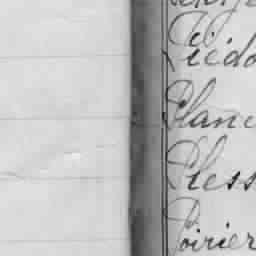 Piedo
Planc
Pless
Poirier